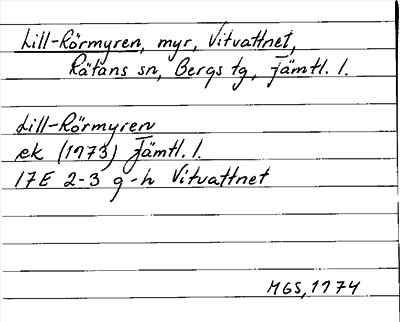 Lill-Rörmyren, myr, Vitvattnet,
Rätans sn, Bergs tg, Jämtl. l.
Lill-Rörmyren
ek (1973) Jämtl. l.
17E 2-3 g-h Vitvattnet
MGS, 1974